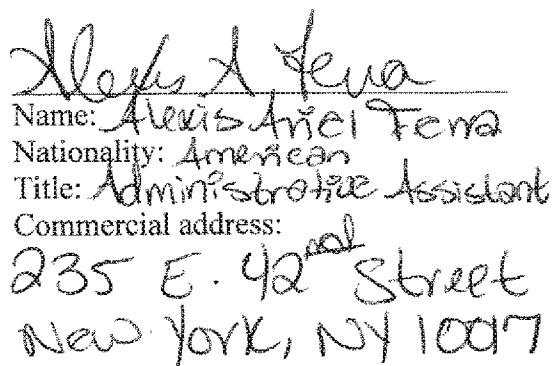 Alexis A Ferra
Name: Alexis Ariel Ferra
Nationality: American
Title: Administrative Assistant
Commercial address:
235 E. 42nd Street
New York, NY 10017